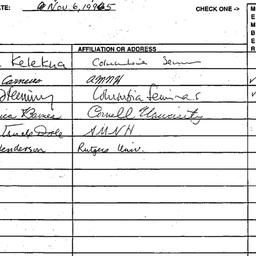 ATE: Nov 6, 1995 CHECK ONE →
AFFILIATION OR ADDRESS
M
E
M
B
E
R
Kelekna Columbia Sem
Carneiro AMNH
Fleming Columbia Seminars
Barnes Cornell University
Trude Dole AMNH
Henderson Rutgers Univ.